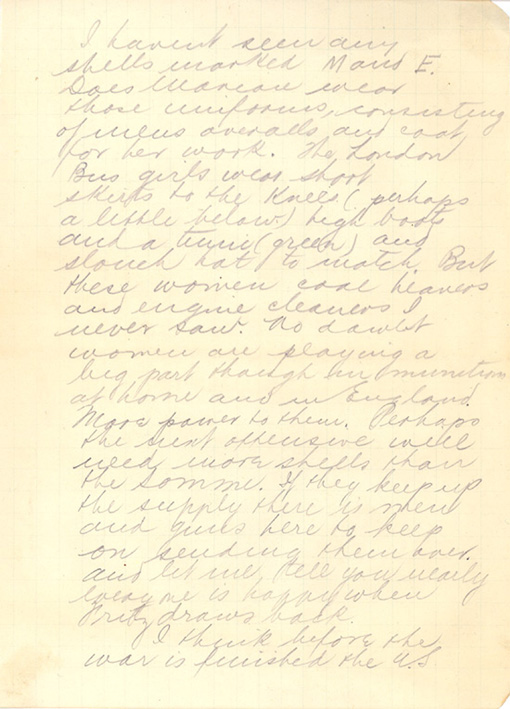 I havent seen any
shells marked M and E.
Does Marion wear
those uniforms, consisting
of mens overalls and coat
for her work. The London
Bus girls wear short
skirts to the Knees (perhaps
a little below) high boots
and a tunic (green) and
slouch hat to match. But
these women coal heavers
and engine cleaners I
never saw. No dawbt
women are playing a
big part though in munitions
at home and in England.
More power to them. Perhaps
the next offensive will
need more shells than
the Somme. If they keep up
the supply there is men
and guns here to keep
on sending them over.
and let me tell you nearly
everyone is happy when
Fritz draws back.
I think before the
war is finished the U.S